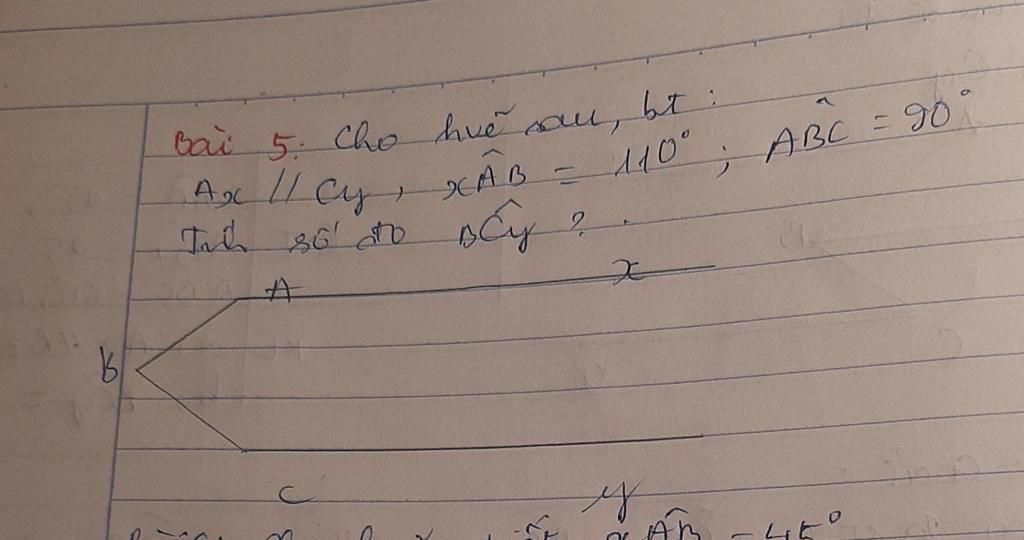 Bài 5: Cho huẽ sau, bt :
Ax // Cy, xÂB = 110° ; AB̂C = 90°
Tính số đo BĈy ? .
A x
B
C y
xÂB = 45°